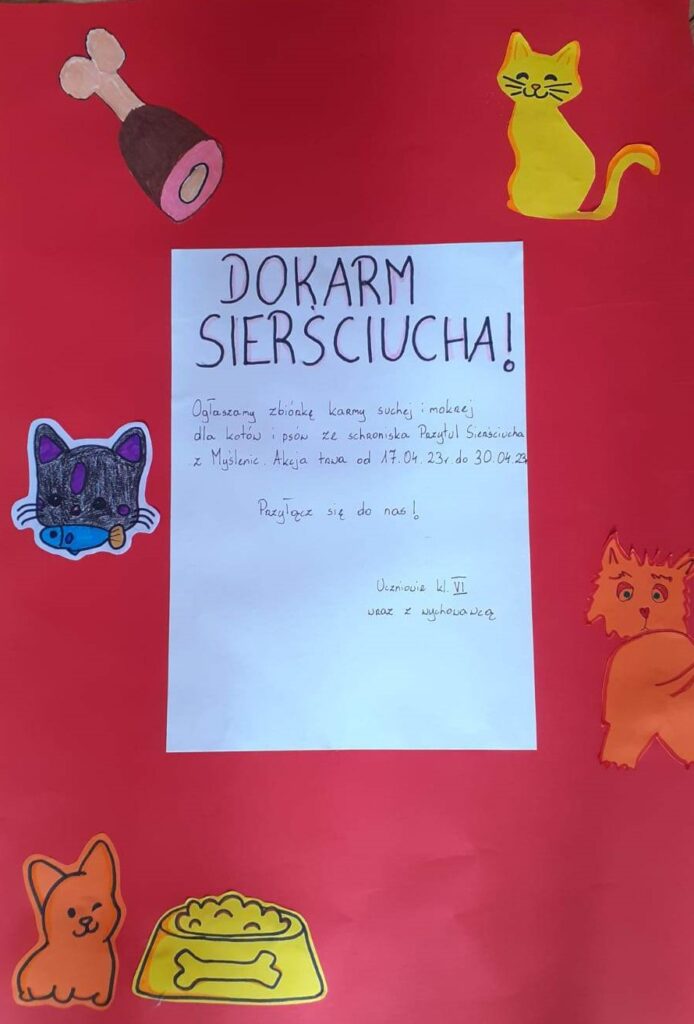 DOKARM
SIERŚCIUCHA!
Ogłaszamy zbiórkę karmy suchej i mokrej
dla kotów i psów ze schroniska Przytul Sierściucha
z Myślenic. Akcja trwa od 17.04.23r do 30.04.23r
Przyłącz się do nas!
Uczniowie kl. VI
wraz z wychowawcą